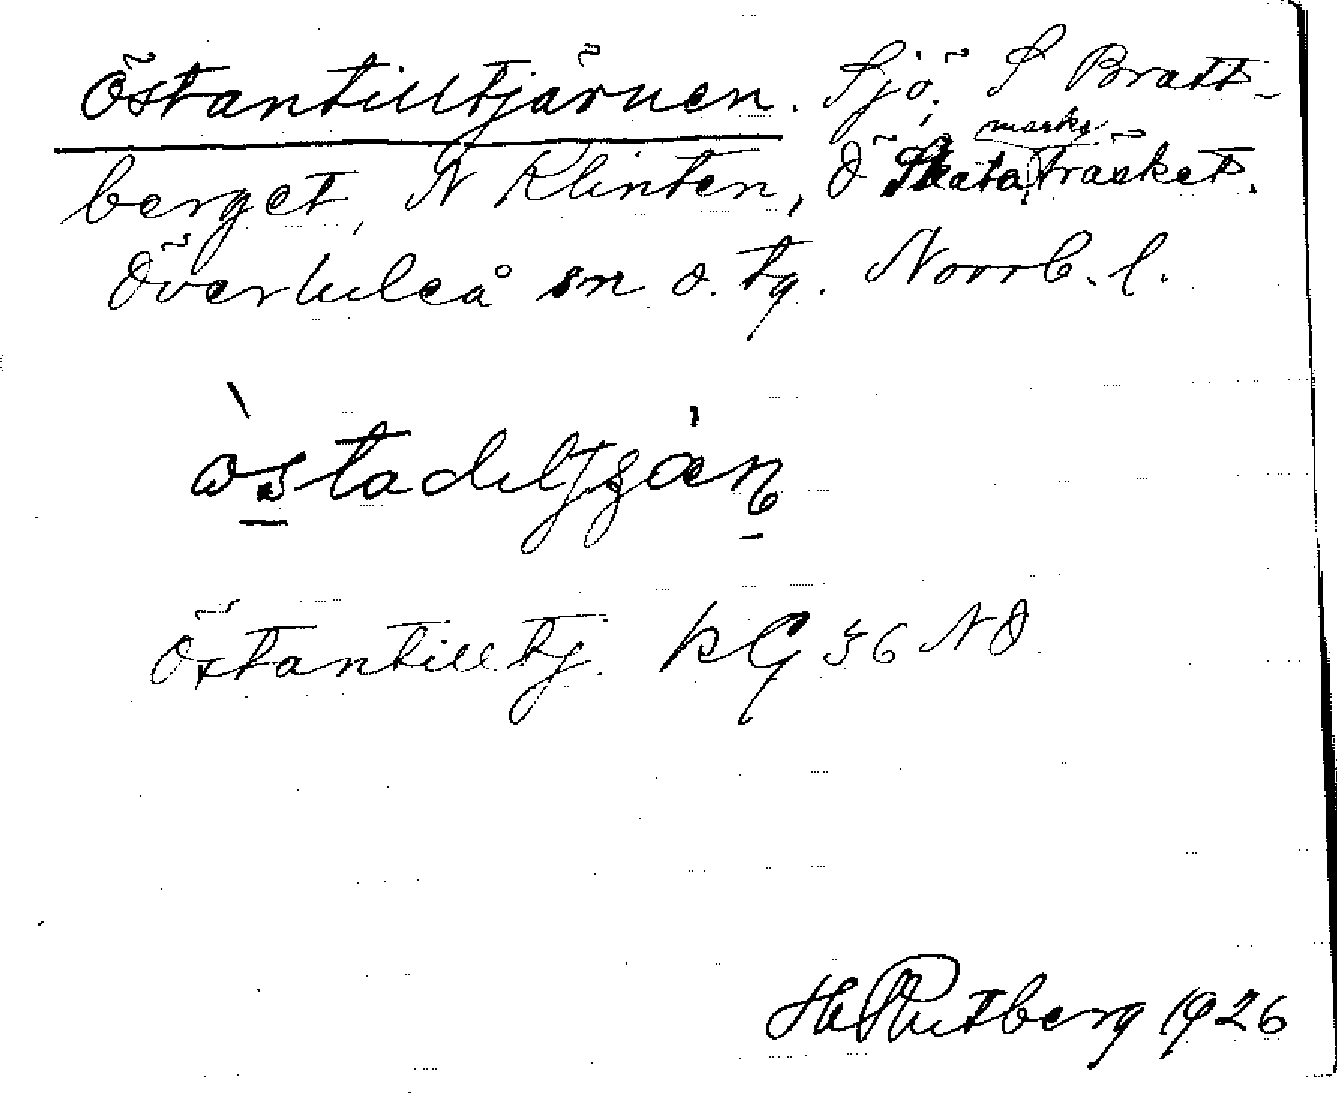 Östantilltjärnen. Sjö, S Bratt-
marks
berget, N Klinten, Ö Skataträsket.
Överluleå sn o. tg. Norrb. l.
Östantilltj. kG 36 NÖ
H Rutberg 1926